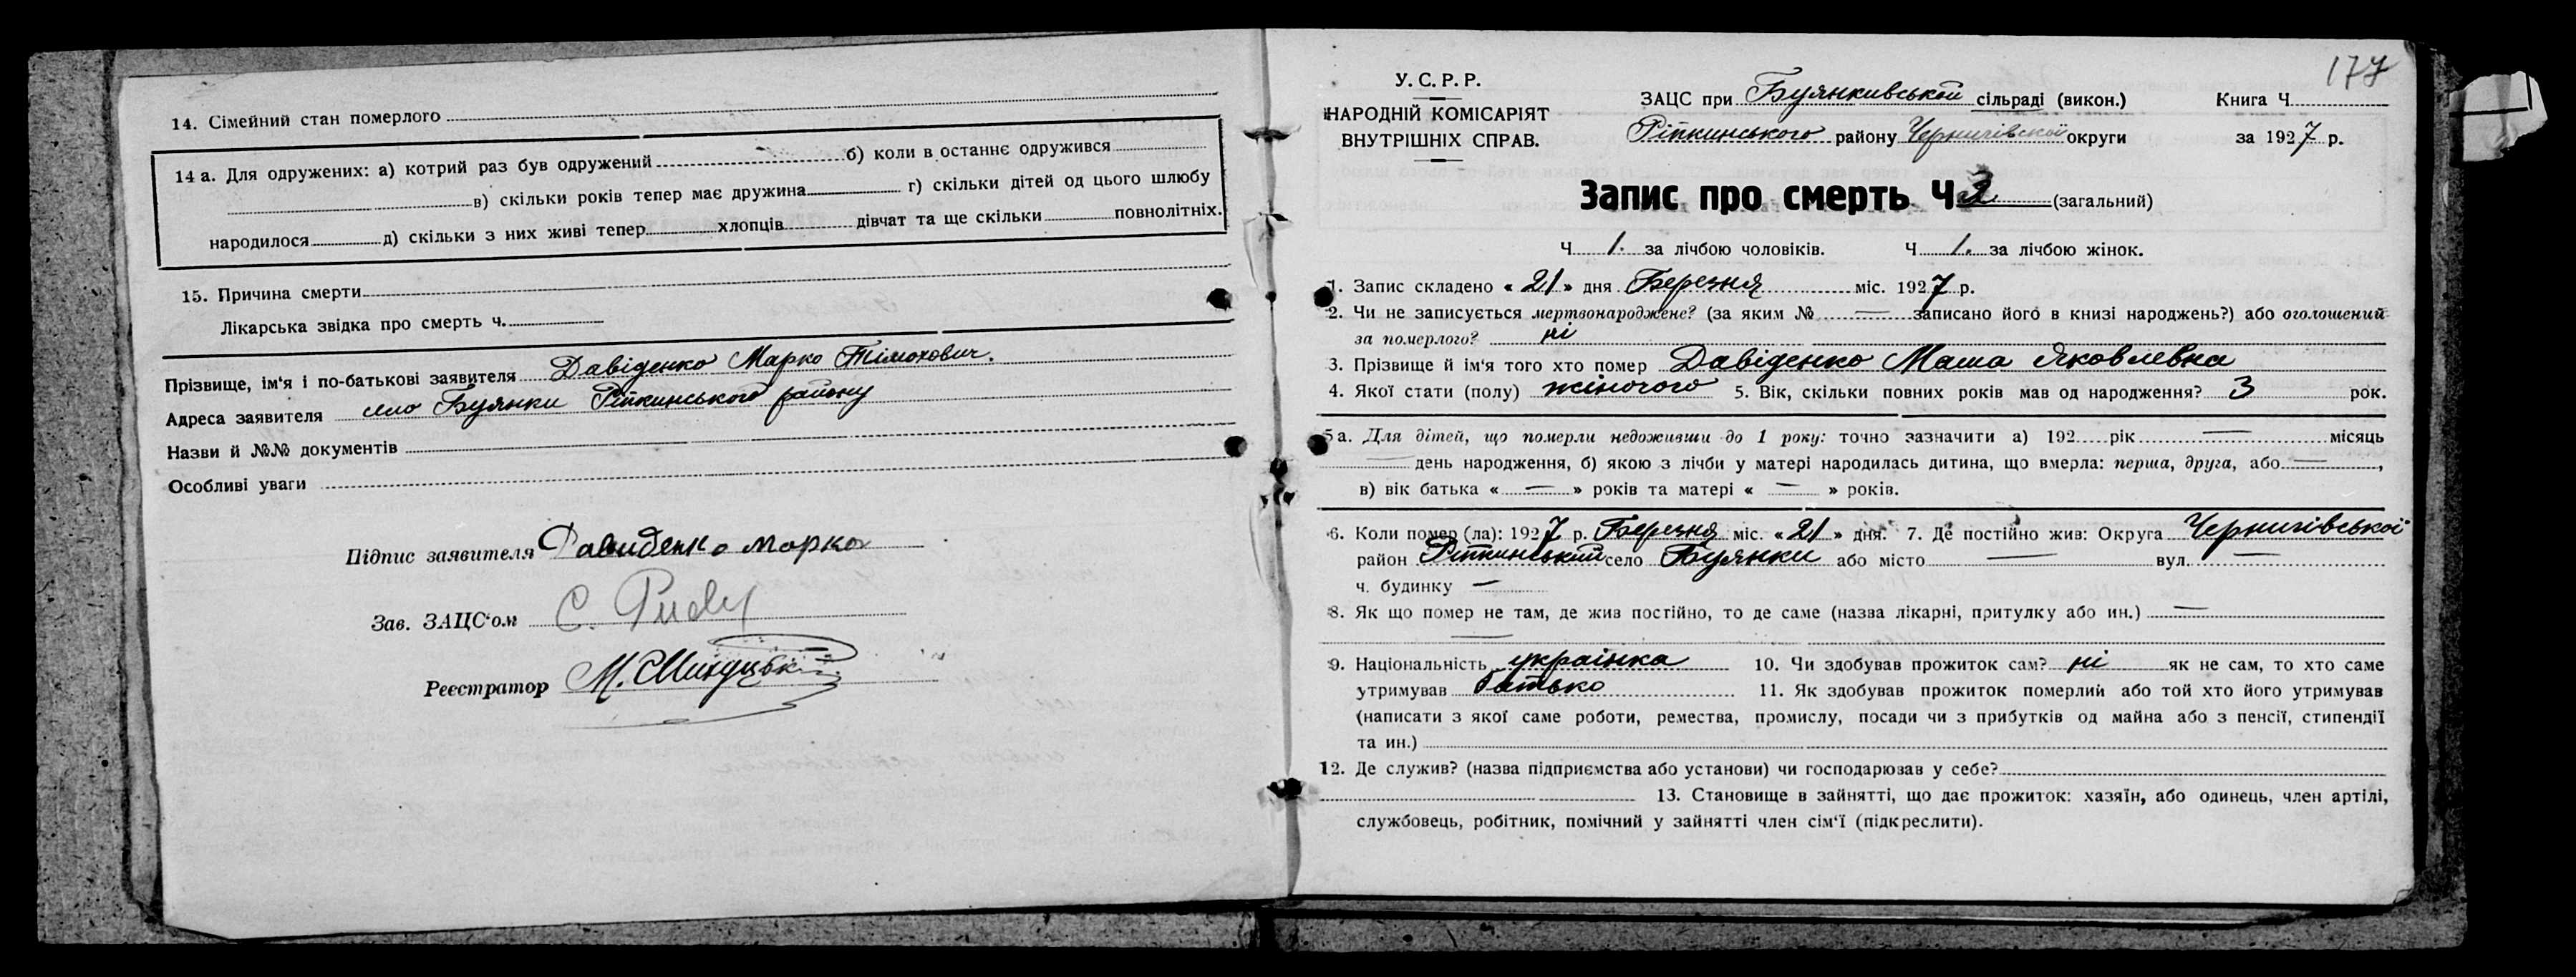 14. Сімейний стан померлого
14 а. Для одружених: а) котрий раз був одружений б) коли в останнє одружився
в) скільки років тепер має дружина г) скільки дітей од цього шлюбу
народилося д) скільки з них живі тепер хлопців дівчат та ще скільки повнолітніх.
15. Причина смерти
Лікарська звідка про смерть ч.
Прізвище, ім'я і по-батькові заявителя Давіденко Марко Тімохович.
Адреса заявителя село Буянки Ріпкинського району
Назви й №№ документів
Особливі уваги
Підпис заявителя Давиденко Марко
Зав. ЗАЦС'ом С. Рудy
Реєстратор М.
177
У. С. Р. Р.
НАРОДНІЙ КОМІСАРІЯТ
ВНУТРІШНІХ СПРАВ.
ЗАЦС при Буянкивськой сільраді (викон.) Книга Ч.
Ріпкинського району Чернигівскої округи за 1927 р.
Запис про смерть Ч 2 (загальний)
Ч 1. за лічбою чоловіків. Ч 1. за лічбою жінок.
1. Запис складено « 21 » дня Березня міс. 1927 р.
2. Чи не записується мертвонароджене? (за яким № — записано його в книзі народжень?) або оголошений
за померлого? ні
3. Прізвище й ім'я того хто помер Давіденко Маша Яковлевна
4. Якої стати (полу) жіночого 5. Вік, скільки повних років мав од народження? 3 рок.
5а. Для дітей, що померли недоживши до 1 року: точно зазначити а) 192 рік — місяць
— день народження, б) якою з лічби у матері народилась дитина, що вмерла: перша, друга, або — ,
в) вік батька « — » років та матері « — » років.
6. Коли помер (ла): 1927 р. Березня міс. « 21 » дня. 7. Де постійно жив: Округа Чернигівської
район Ріпкинський село Буянки або місто — вул. —
ч. будинку —
8. Як що помер не там, де жив постійно, то де саме (назва лікарні, притулку або ин.) —
—
9. Національність українка 10. Чи здобував прожиток сам? ні як не сам, то хто саме
утримував батько 11. Як здобував прожиток померлий або той хто його утримував
(написати з якої саме роботи, ремества, промислу, посади чи з прибутків од майна або з пенсії, стипендії
та ин.)
12. Де служив? (назва підприємства або установи) чи господарював у себе?
13. Становище в зайнятті, що дає прожиток: хазяїн, або одинець, член артілі,
службовець, робітник, помічний у зайнятті член сім'ї (підкреслити).